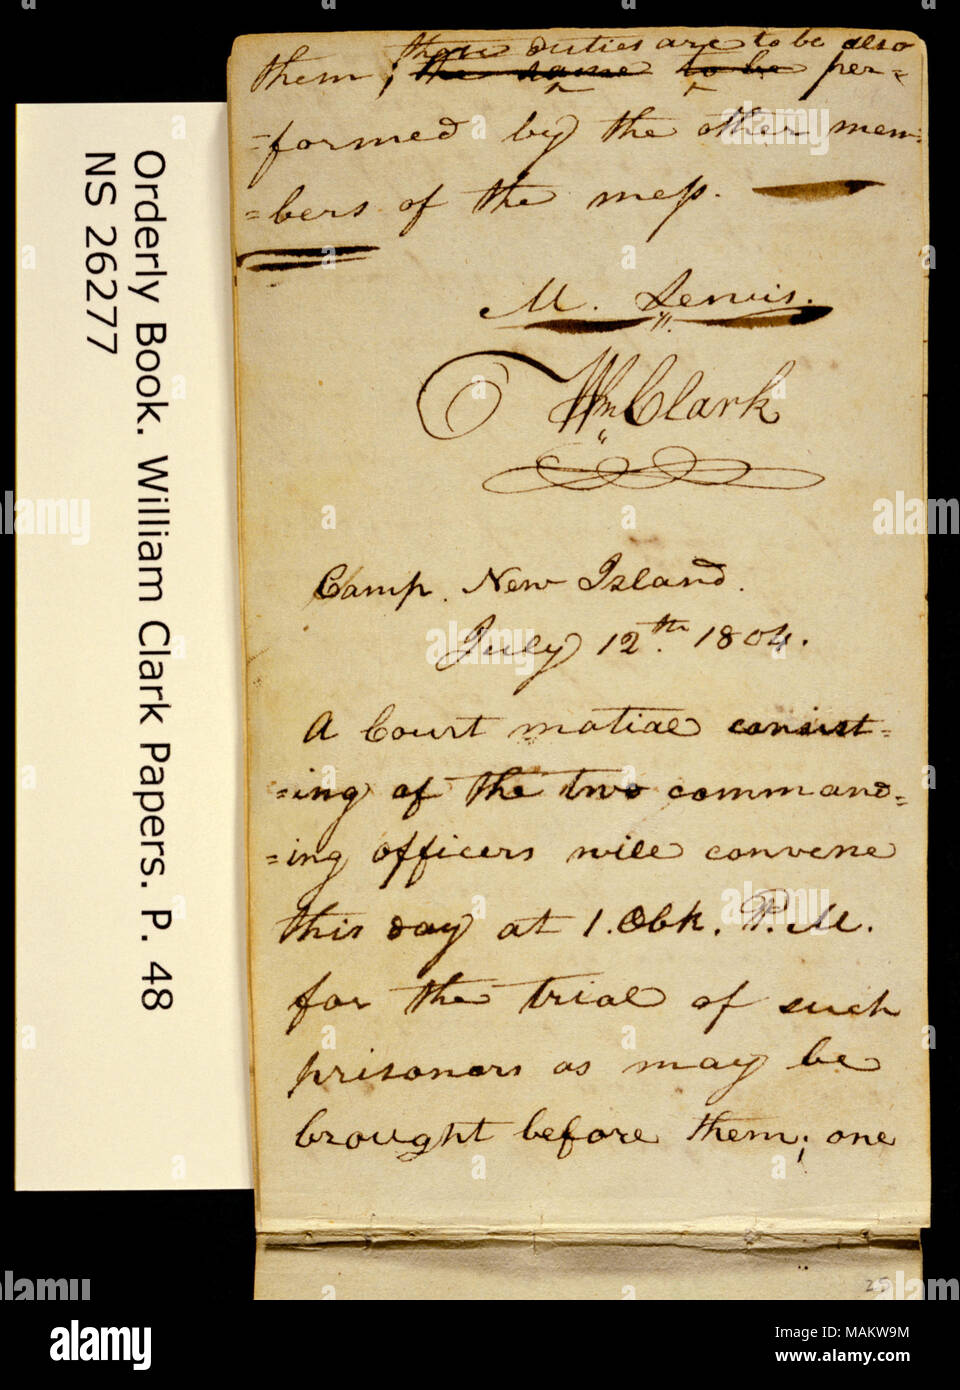 thos duties are to be also
them, the same to be per=
=formed by the other mem=
=bers of the mess.
M. Lewis.
Wm Clark
Camp. New Island.
July 12th. 1804.
A Court matial consist=
=ing of the two command=
=ing officers will convene
this day at 1. OCk. P.M.
for the trial of such
prisoners as may be
brought before them; one
25
Orderly Book. William Clark Papers. P. 48
NS 26277
alamy
Image ID: MAKW9M
www.alamy.com